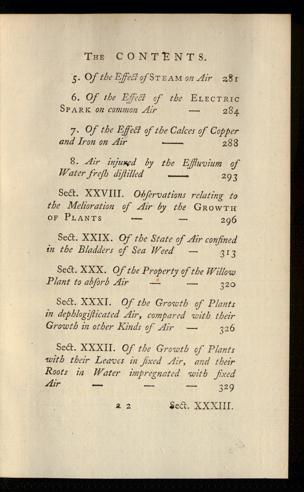 THE CONTENTS.
5. Of the Effect of STEAM on Air 281
6. Of the Effect of the ELECTRIC
SPARK on common Air — 284
7. Of the Effect of the Calces of Copper
and Iron on Air — 288
8. Air injured by the Effluvium of
Water fresh distilled — 293
Sect. XXVIII. Observations relating to
the Melioration of Air by the GROWTH
OF PLANTS — — 296
Sect. XXIX. Of the State of Air confined
in the Bladders of Sea Weed — 313
Sect. XXX. Of the Property of the Willow
Plant to absorb Air — — 320
Sect. XXXI. Of the Growth of Plants
in dephlogisticated Air, compared with their
Growth in other Kinds of Air — 326
Sect. XXXII. Of the Growth of Plants
with their Leaves in fixed Air, and their
Roots in Water impregnated with fixed
Air — — — 329
a 2 Sect. XXXIII.